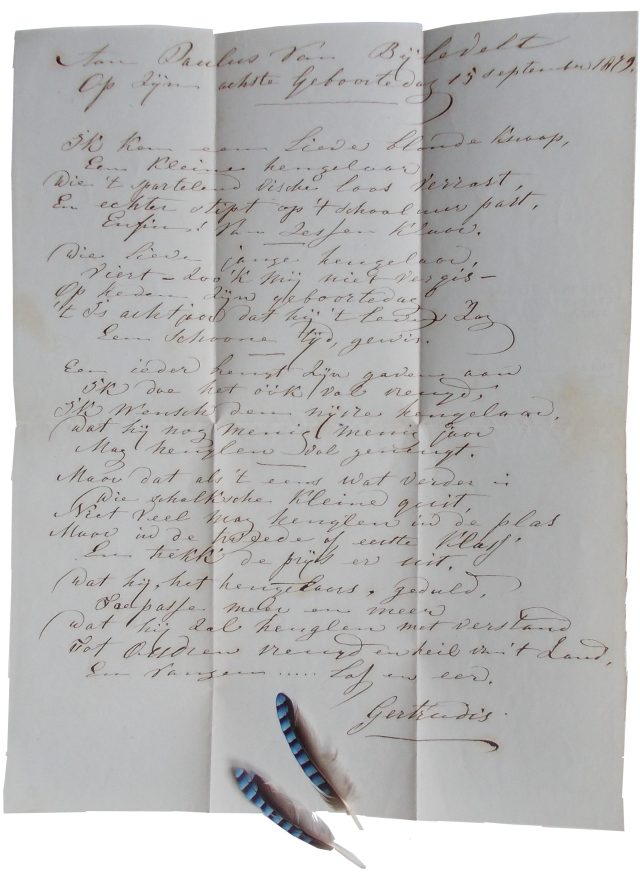 Aan Paulus Van Bijlevelt
Op Zijn achste Geboortedag 15 september 1879.
Ik ken een Lieve blonde Knaap,
Een kleine hengelaar
Die 't spartelend vischje loos verrast,
En echter stipt op 't schooluur past,
Enfin! Van Lessen klaar.
Die Lieve jonge hengelaar,
Viert – zoo 'k mij niet vergis –
Op heden Zijn geboortedag
't Is acht jaar dat hij 't Leven Zag
Een Schoone tijd, gewis.
Een ieder hengt Zijn gaven aan
Ik doe het óók vol vreugd,
Ik Wensch den hengelaar,
Dat hij nog menig menig jaar
Mag henglen vol geneugt.
Maar dat als 't eens wat verder is
Die schalksche kleine guit,
Niet Veel mag henglen in de plas
Maar in de tweede of eerste Klass'
En trekk' de prijs er uit.
Dat hij, het hengelaars geduld,
Toepasse meer en meer
Dat hij Zal henglen met verstand
Tot Oudren vreugd en heil van 't Land,
En Vangen ..... Lof en eer.
Gertrudis.